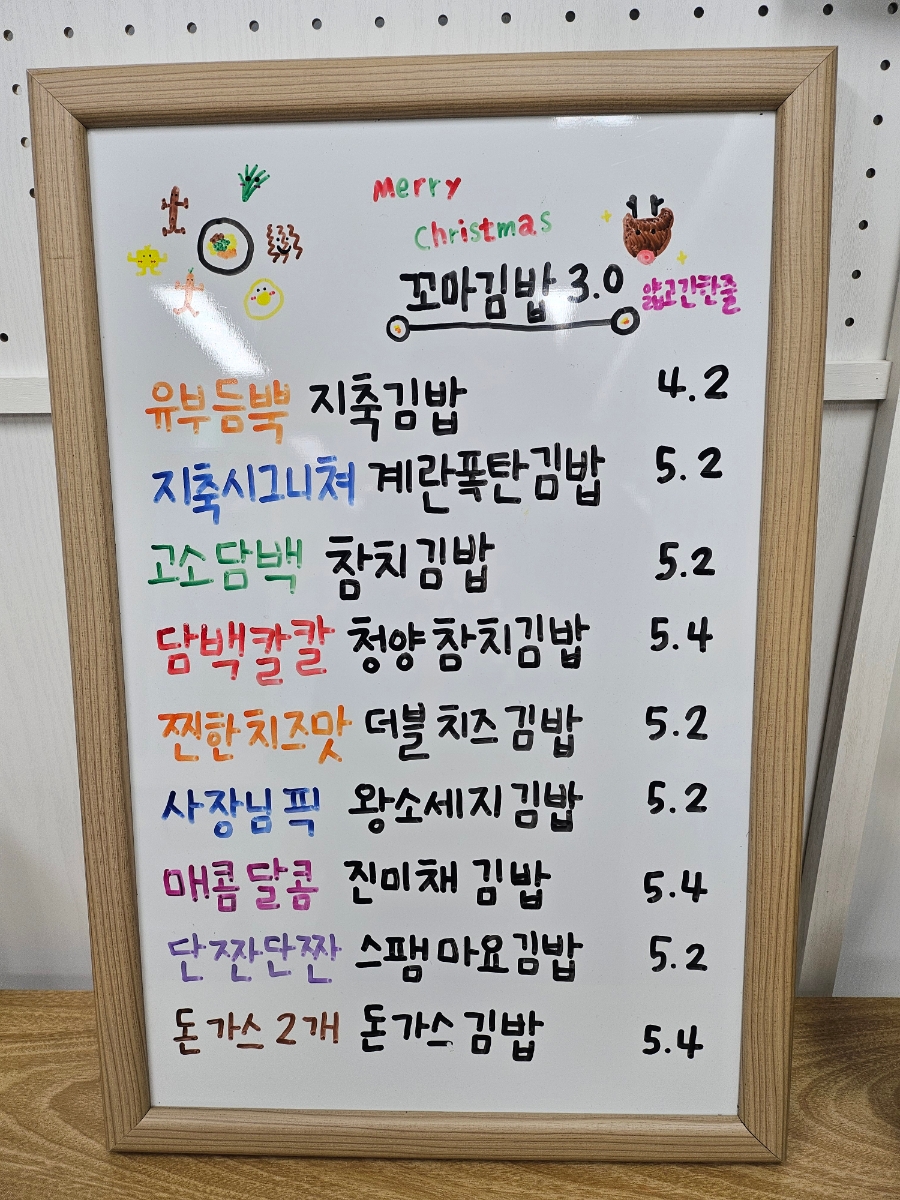 Merry
Christmas
꼬마김밥 3.0 얇고간한줄
유부듬뿍 지축김밥 4.2
지축시그니쳐 계란폭탄김밥 5.2
고소담백 참치김밥 5.2
담백칼칼 청양참치김밥 5.4
찐한치즈맛 더블치즈김밥 5.2
사장님픽 왕소세지김밥 5.2
매콤달콤 진미채김밥 5.4
단짠단짠 스팸마요김밥 5.2
돈가스2개 돈가스김밥 5.4